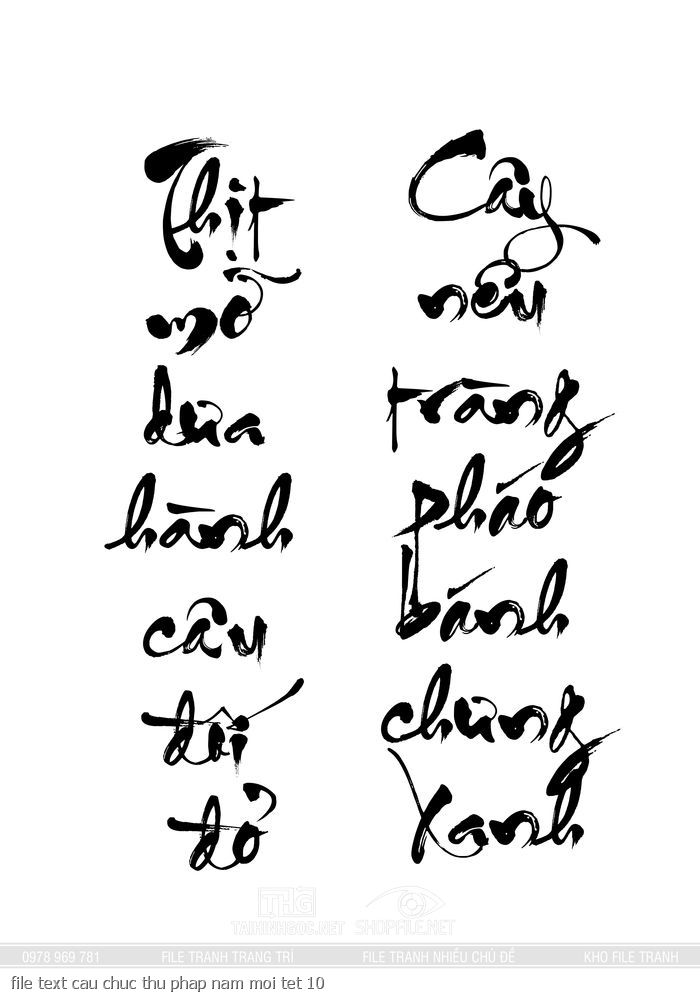 Thịt
mỡ
dưa
hành
câu
đối
đỏ
Cây
nêu
tràng
pháo
bánh
chưng
Xanh
THG
TAIHINHGOC.NET
SHOPFILE.NET
0978 969 781
FILE TRANH TRANG TRÍ
FILE TRANH NHIỀU CHỦ ĐỀ
KHO FILE TRANH
file text cau chuc thu phap nam moi tet 10